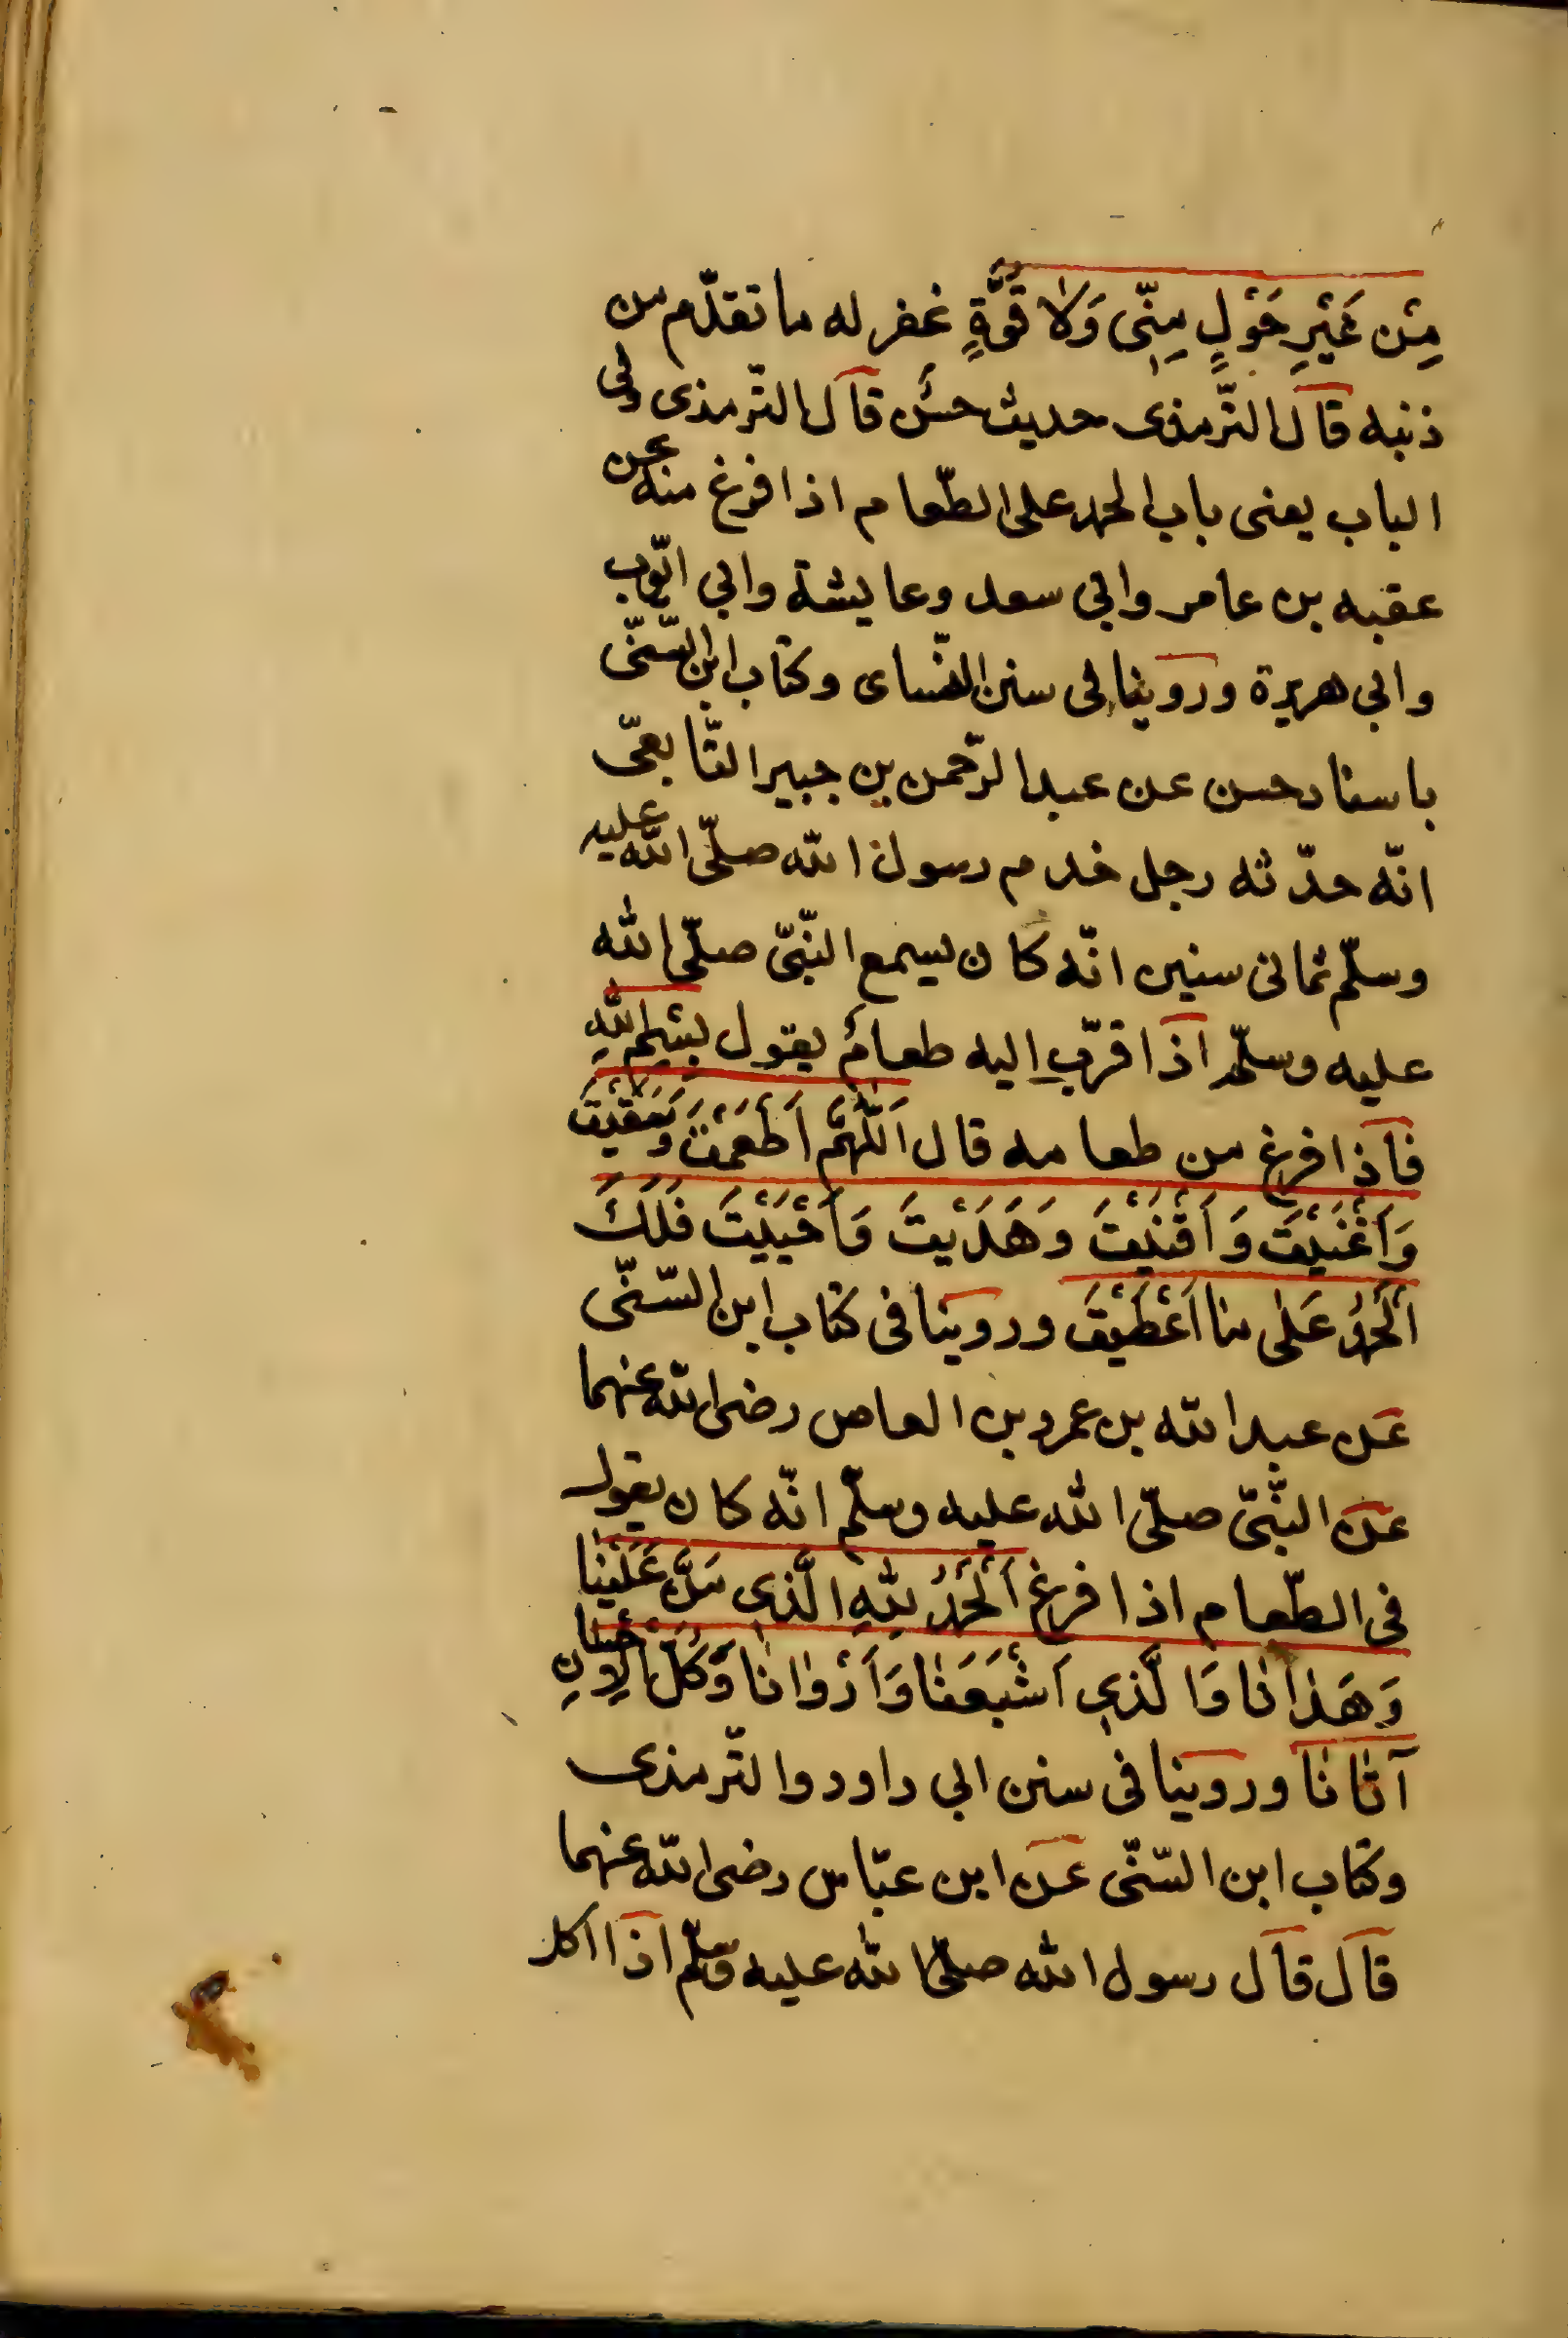 مِنْ غَيْرِ حَوْلٍ مِنِّى وَلَا قُوَّةٍ غفر له ما تقدّم من
ذنبه قال التّرمذى حديث حسن قال الترّمذى وفى
الباب يعنى باب الحمد على الطّعام اذا فرغ منه عن
عقبه بن عامر وابى سعد وعايشة وابي ايّوب
وابي هريرة وروينا فى سنن النّساى وكتاب ابن السّنّى
باسناد حسن عن عبد الرّحمن بن جبير التّابعىّ
انّه حدّثه رجل خدم رسول الله صلّى الله عليه
وسلّم ثمانى سنين انّه كان يسمع النّبىّ صلّى الله
عليه وسلّم اذا قرّب اليه طعامٌ يقول بِسْمِ اللهِ
فاذا فرغ من طعامه قال اَللّٰهُمَّ اَطْعَمْتَ وَسَقَيْتَ
وَاَغْنَيْتَ وَاَقْنَيْتَ وَهَدَيْتَ وَاَحْيَيْتَ فَلَكَ
اَلْحَمْدُ عَلٰى مٰا اَعْطَيْتَ وروينا فى كتاب ابن السّنّى
عن عبد الله بن عمرو بن العاص رضى الله عنهما
عن النّبىّ صلّى الله عليه وسلّم انّه كان يقول
فى الطّعام اذا فرغ اَلْحَمْدُ لِلّٰهِ الَّذِي مَنَّ عَلَيْنٰا
وَهَدٰانٰا وَالَّذِي اَشْبَعَنٰا وَاَرْوٰانٰا وَكُلَّ الْاِحْسٰانِ
آتٰانٰا وروينا فى سنن ابي داود والتّرمذى
وكتاب ابن السّنّى عن ابن عبّاس رضى الله عنهما
قال قال رسول الله صلّى الله عليه وسلّم اذا اكل